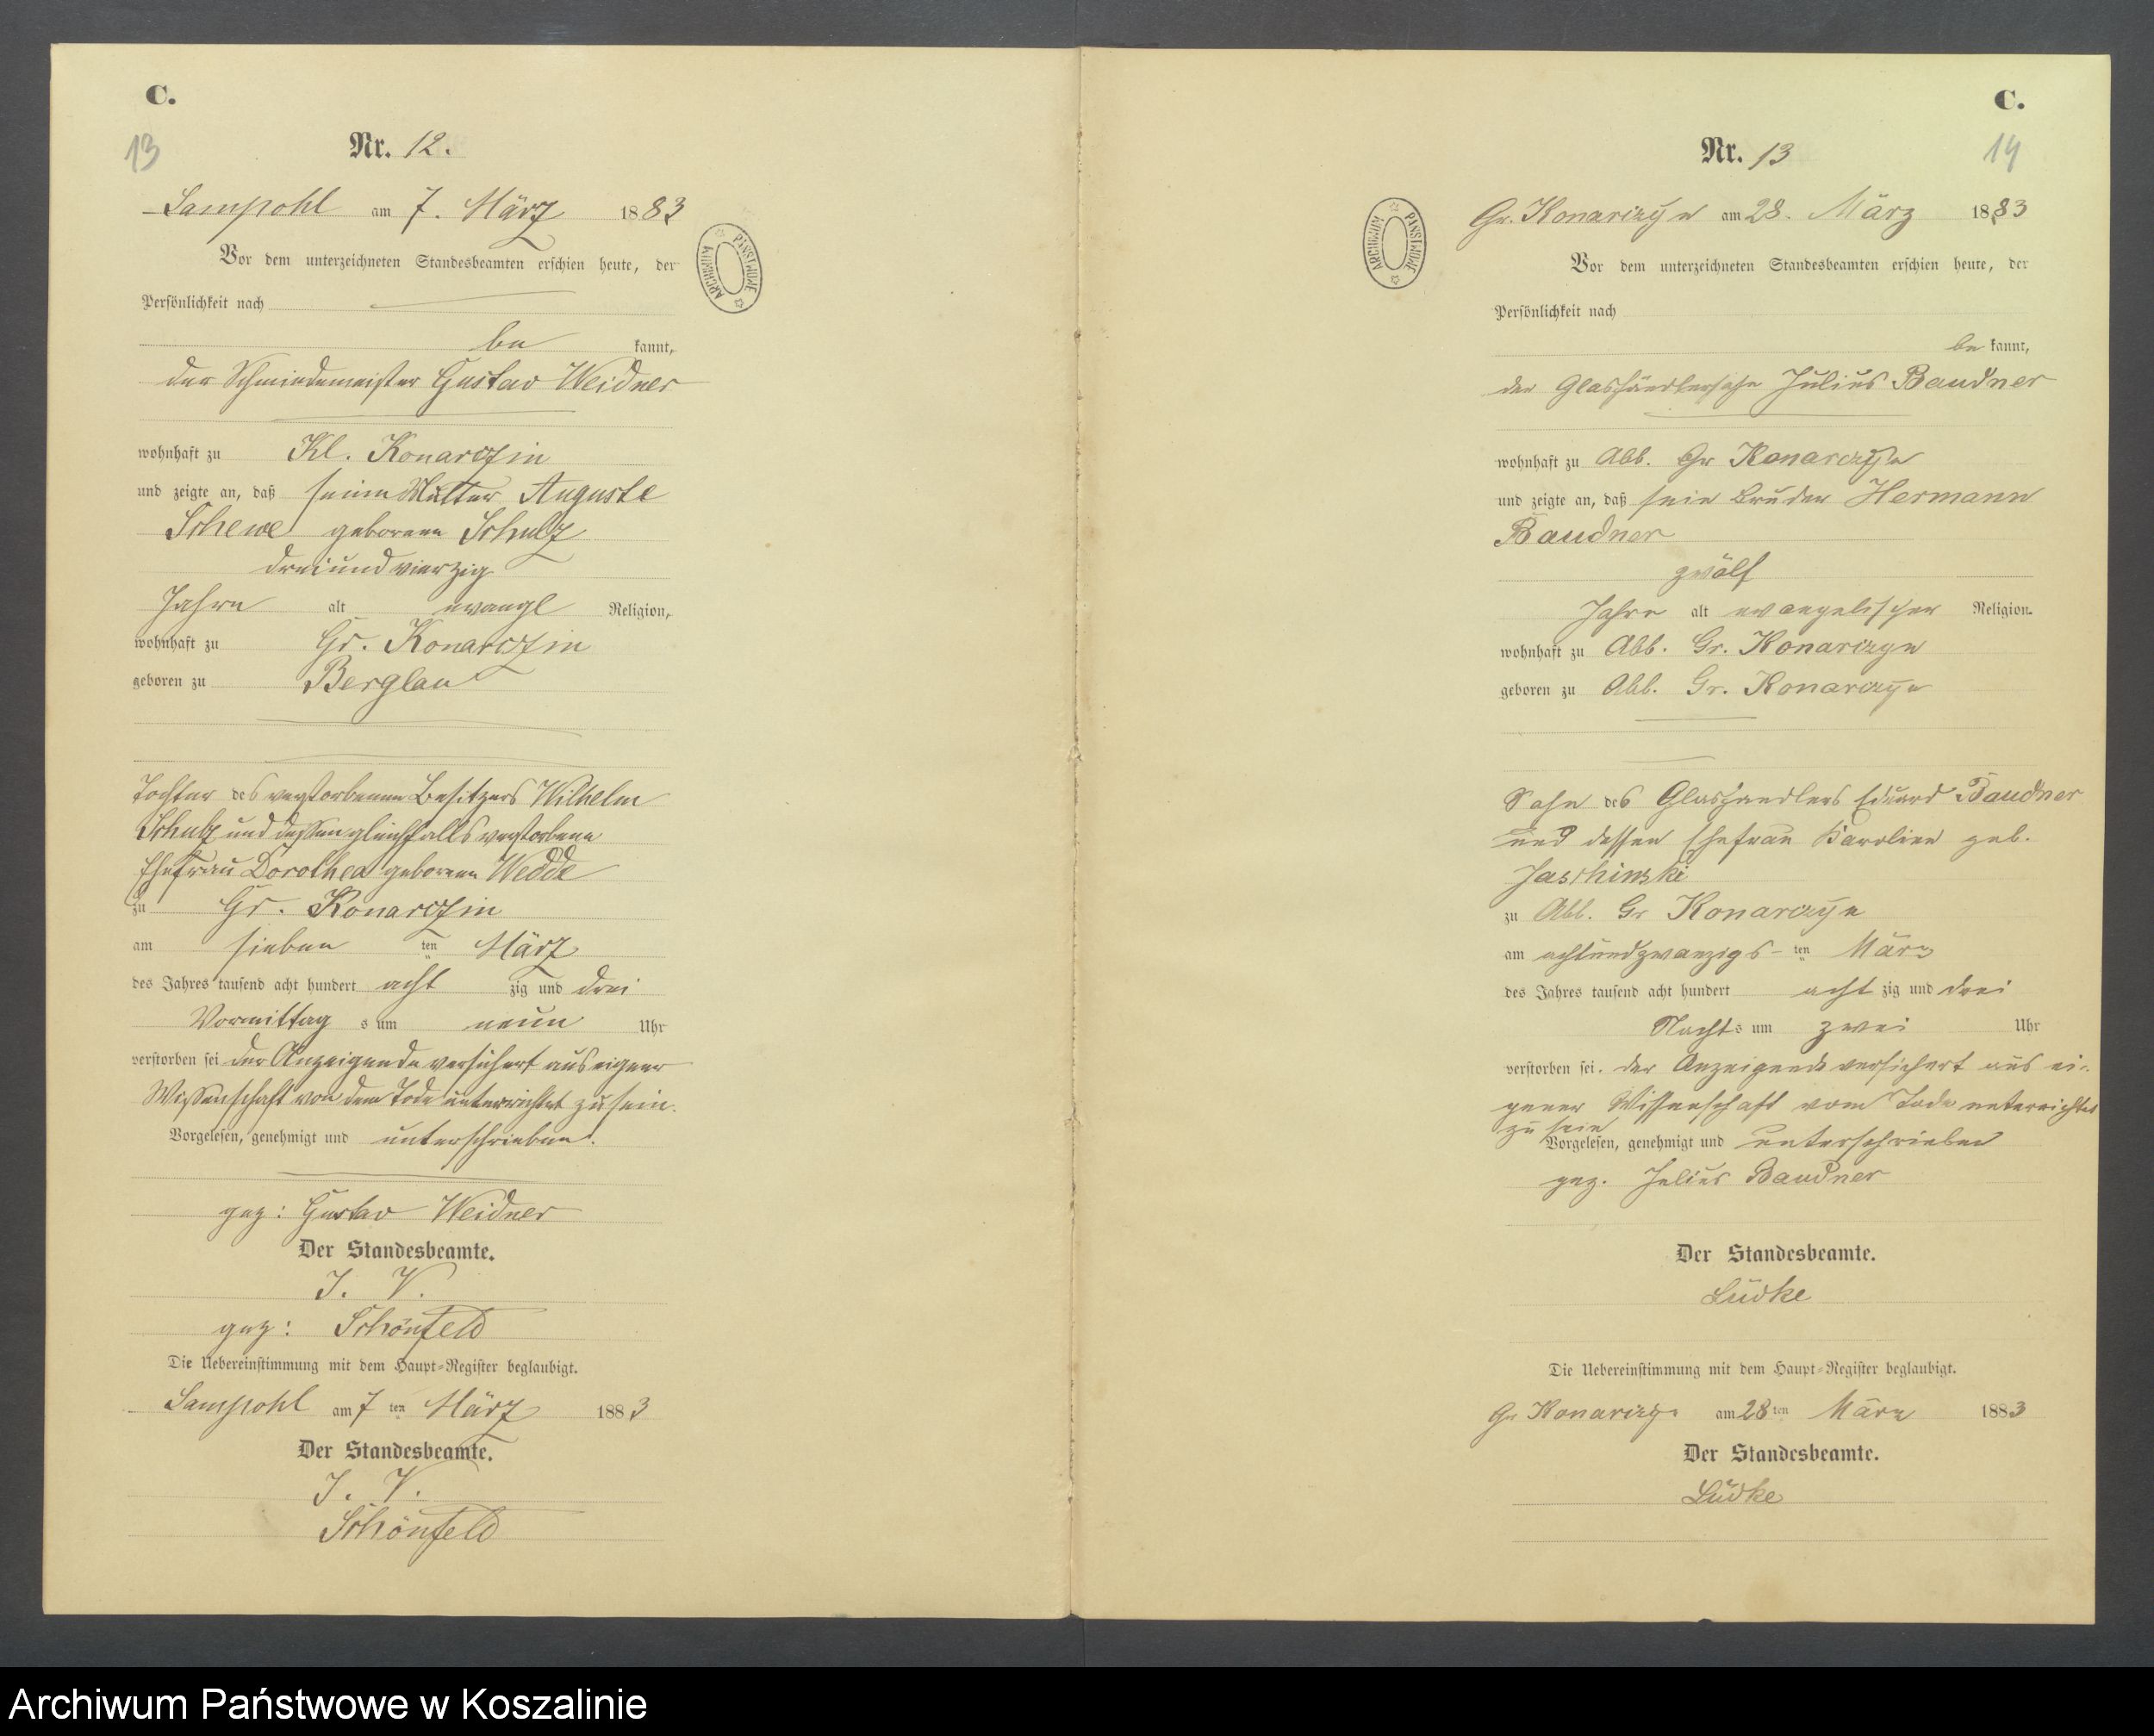 C.
13
Nr. 12.
Sampohl am 7. März 1883
Vor dem unterzeichneten Standesbeamten erschien heute, der
Persönlichkeit nach
be kannt,
der Schmiedemeister Gustav Weidner
wohnhaft zu Kl. Konarczin
und zeigte an, daß seine Mutter Auguste
Schewe geborene Schulz
dreiundvierzig
Jahre alt evangl Religion,
wohnhaft zu Gr. Konarczin
geboren zu Berglau
Tochter des verstorbenen Besitzers Wilhelm
Schulz und dessen gleichfalls verstorbene
Ehefrau Dorothea geborene Wedde
zu Gr. Konarczin
am sieben ten März
des Jahres tausend acht hundert acht zig und drei
Vormittag s um neun Uhr
verstorben sei der Anzeigende versichert aus eigener
Wissenschaft von dem Tode unterrichtet zu sein.
Vorgelesen, genehmigt und unterschrieben.
gez: Gustav Weidner
Der Standesbeamte.
J. V.
gez: Schönfeld
Die Uebereinstimmung mit dem Haupt-Register beglaubigt.
Sampohl am 7 ten März 1883
Der Standesbeamte.
J. V.
Schönfeld
ARCHIWUM PAŃSTWOWE
C.
14
Nr. 13
Gr. Konarczyn am 28. März 1883
Vor dem unterzeichneten Standesbeamten erschien heute, der
Persönlichkeit nach
be kannt,
der Glashändlersohn Julius Baudner
wohnhaft zu Abb. Gr Konarczyn
und zeigte an, daß sein Bruder Hermann
Baudner
zwölf
Jahre alt evangelischer Religion.
wohnhaft zu Abb. Gr. Konarczyn
geboren zu Abb. Gr. Konarczyn
Sohn des Glashandlers Eduard Baudner
und dessen Ehefrau Karoline geb.
Jaschinski
zu Abb. Gr Konarczyn
am achtundzwanzigs- ten März
des Jahres tausend acht hundert acht zig und drei
Nachts um zwei Uhr
verstorben sei. der Anzeigende versichert aus ei-
gener Wissenschaft vom Tode unterrichtet
zu sein
Vorgelesen, genehmigt und unterschrieben
gez. Julius Baudner
Der Standesbeamte.
Lüdke
Die Uebereinstimmung mit dem Haupt-Register beglaubigt.
Gr Konarczyn am 28 ten März 1883
Der Standesbeamte.
Lüdke
ARCHIWUM PAŃSTWOWE
Archiwum Państwowe w Koszalinie